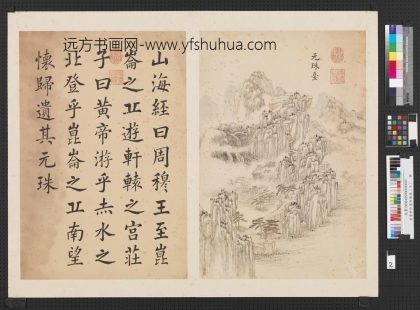 远方书画网-www.yfshuhua.com
山海經曰周穆王至崑
崙之丘遊軒轅之宮莊
子曰黃帝游乎赤水之
北登乎崑崙之丘南望
懷歸遺其元珠
元珠臺
2